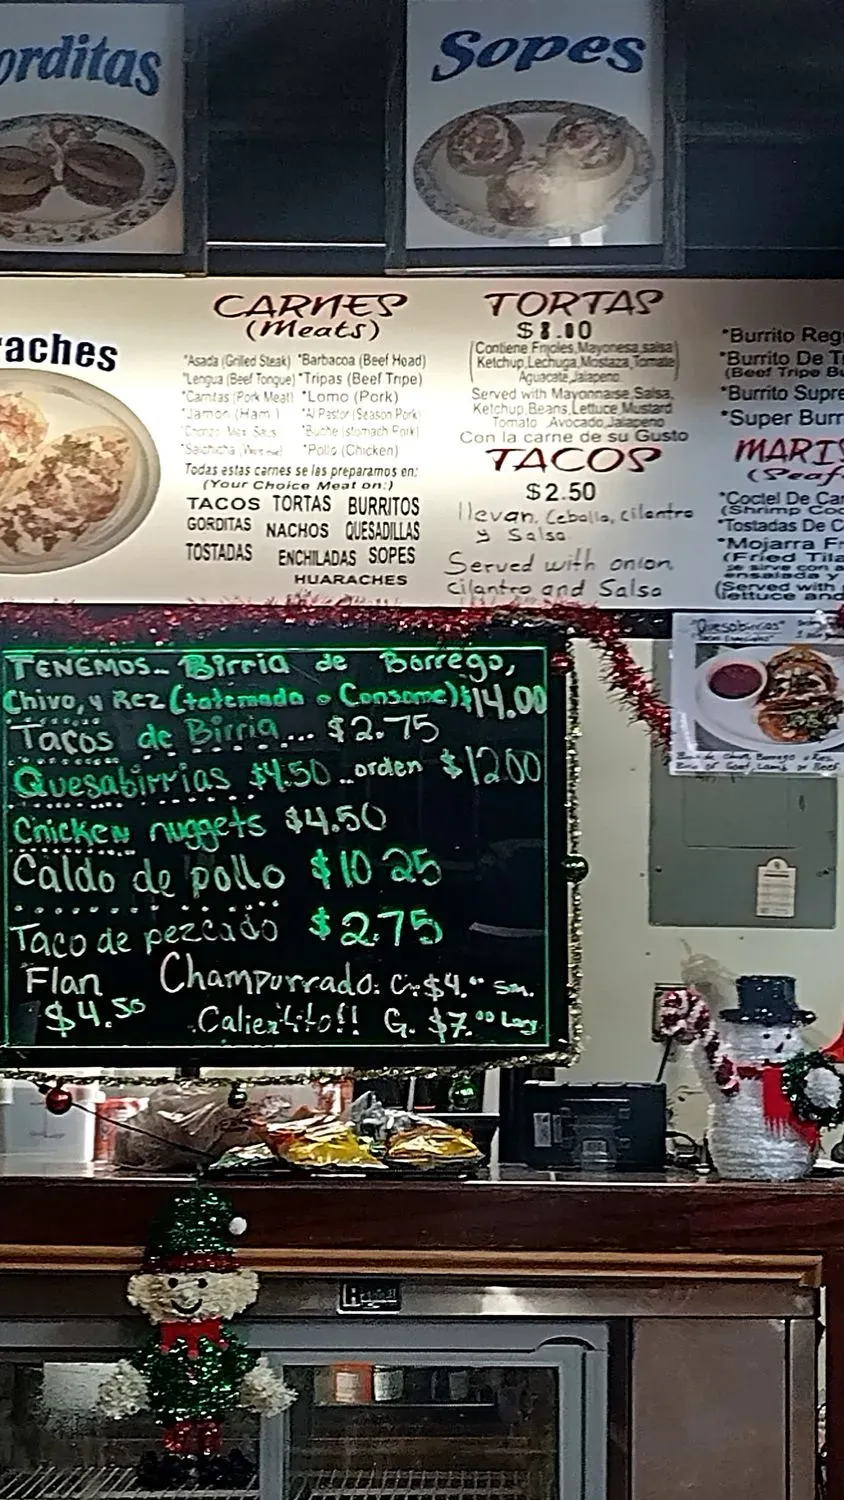 orditas
Sopes
raches
CARNES
(Meats)
*Asada (Grilled Steak) *Barbacoa (Beef Head)
*Lengua (Beef Tongue) *Tripas (Beef Tripe)
*Carnitas (Pork Meat) *Lomo (Pork)
*Jamon (Ham) *Al Pastor (Season Pork)
*Buche (stomach Pork)
*Salchicha *Pollo (Chicken)
Todas estas carnes se las preparamos en:
(Your Choice Meat on:)
TACOS TORTAS BURRITOS
GORDITAS NACHOS QUESADILLAS
TOSTADAS ENCHILADAS SOPES
HUARACHES
TORTAS
(Contiene Frijoles,Mayonesa,salsa
Ketchup,Lechuga,Mostaza,Tomate
Aguacate,Jalapeno
Served with Mayonnaise,Salsa,
Ketchup,Beans,Lettuce,Mustard
Tomato ,Avocado,Jalapeno
Con la carne de su Gusto
TACOS
$2.50
llevan. Cebolla, cilantro
y Salsa
Served with onion
cilantro and Salsa
*Burrito Reg
*Burrito De Tr
(Beef Tripe Bu
*Burrito Supre
*Super Burr
MARIS
(Seaf
*Coctel De Ca
(Shrimp Coc
*Tostadas De C
*Mojarra Fr
(Fried Tila
se sirve con a
ensalada y
(Served with
lettuce and
"Quesabirrias"
TENEMOS... Birria de Borrego,
Chivo, y Rez (tatemada o Consome) $14.00
Tacos de Birria... $2.75
Quesabirrias $4.50 ..orden $12.00
Chicken nuggets $4.50
Caldo de pollo $10 25
Taco de pezcado $2.75
Flan Champurrado: C. $4.00 sm.
$4.50 Calientito!! G. $7.00 Larg